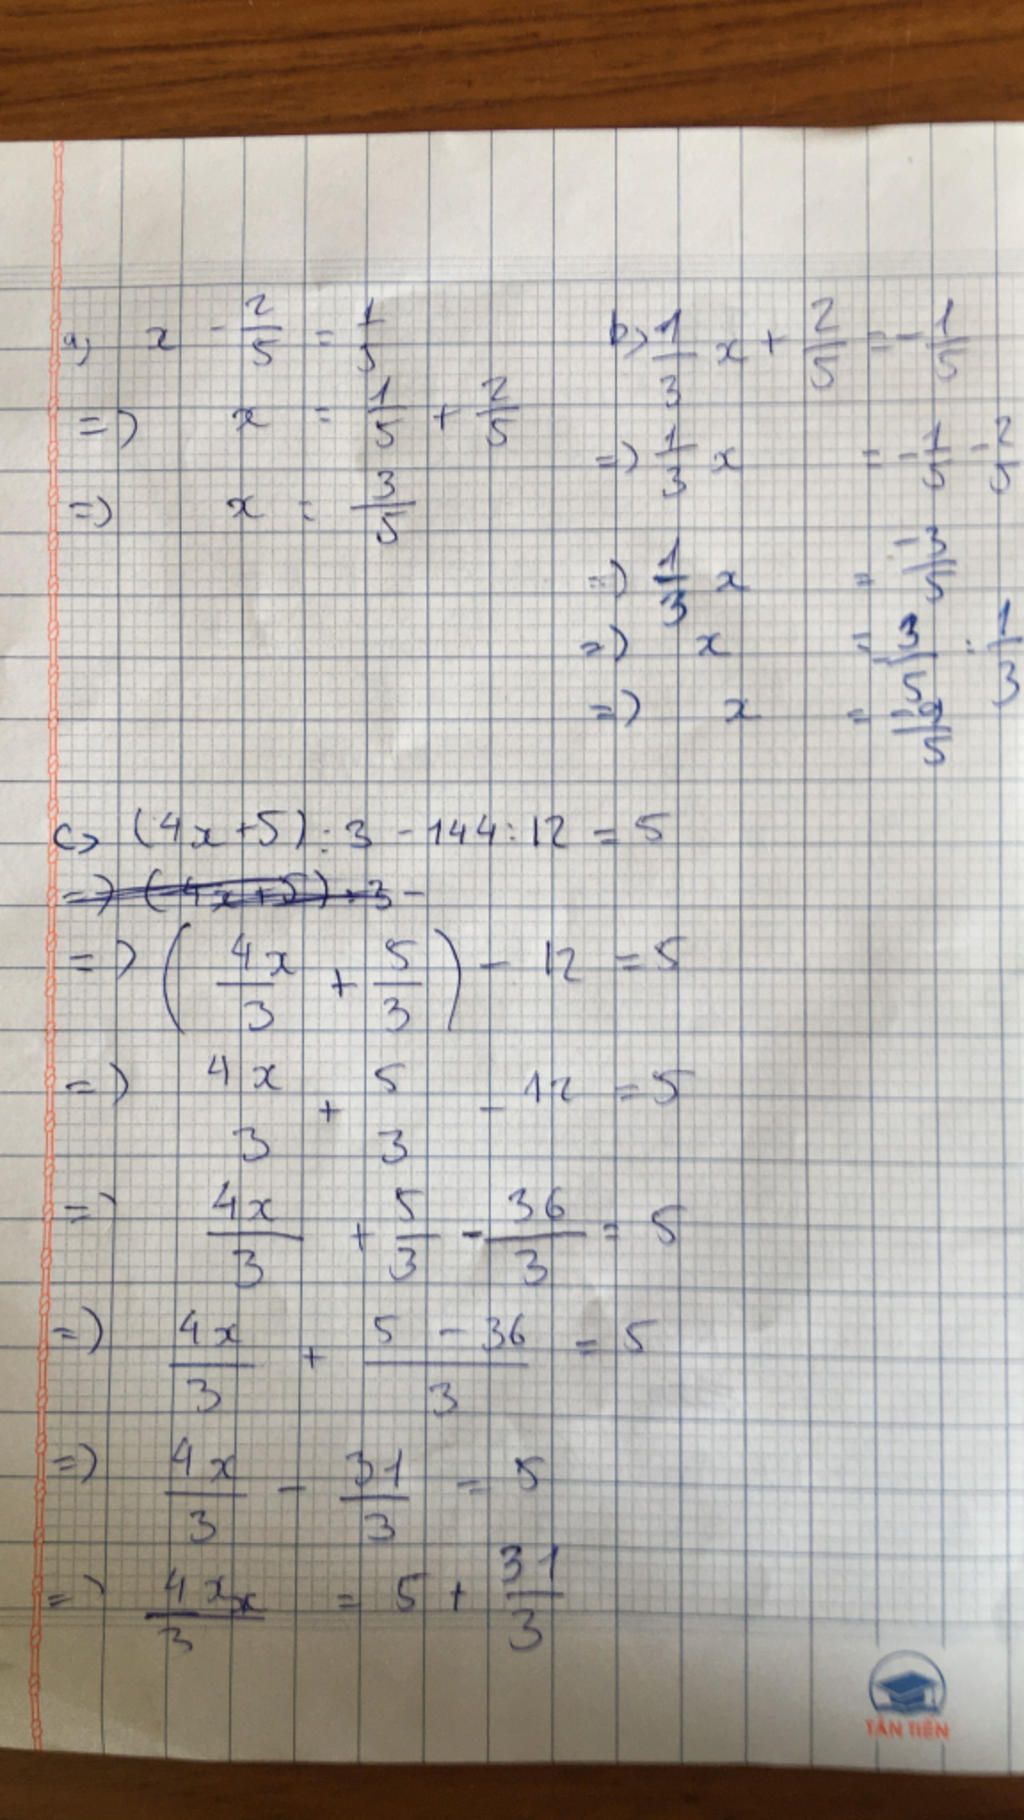 a) x - 2/5 = 1/5
=) x = 1/5 + 2/5
=) x = 3/5
b) 1/3 x + 2/5 = - 1/5
=) 1/3 x = - 1/5 - 2/5
=) 1/3 x = -3/5
=) x = - 3/5 : 1/3
=) x = /5
c) (4x+5) : 3 - 144 : 12 = 5
=) (4x+5) : 3 -
=) (4x/3 + 5/3) - 12 = 5
=) 4x 3 + 5 3 - 12 = 5
=) 4x/3 + 5/3 - 36/3 = 5
=) 4x/3 + 5 - 36/3 = 5
=) 4x/3 - 31/3 = 5
=) 4x x/3 = 5 + 31/3
TÂN TIẾN